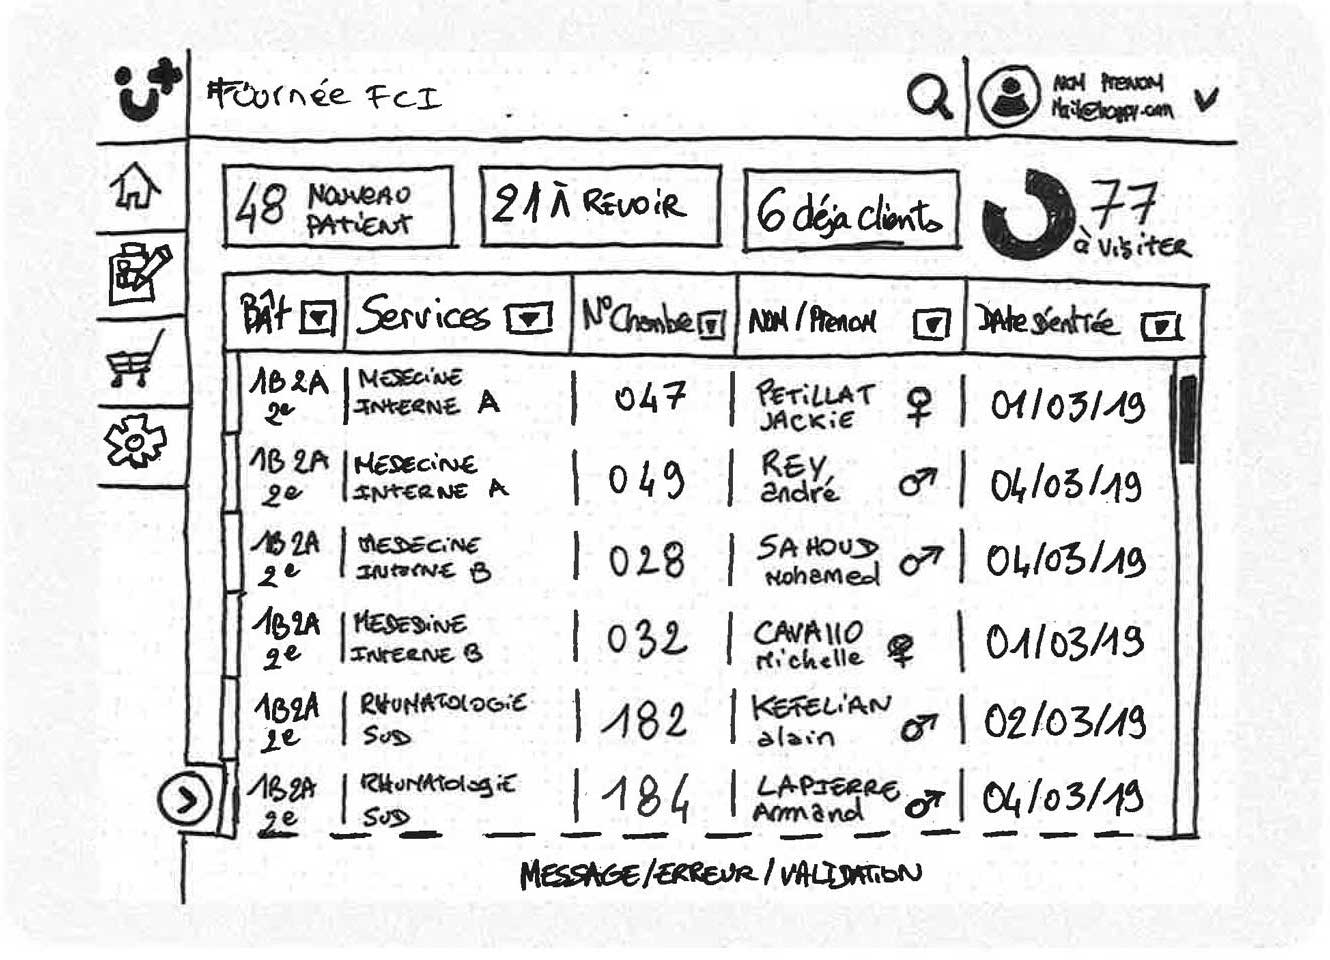 Tournée FCI
NOM PRENOM
Mail@happy.com
48 NOUVEAU
PATIENT
21 À REVOIR
6 déja clients
77
à VISITER
Bât
Services
N° Chambre
NOM / Prenom
DATE d'entrée
1B 2A
2e
MEDECINE
INTERNE A
047
PETILLAT
JACKIE
01/03/19
1B 2A
2e
MEDECINE
INTERNE A
049
REY
andré
04/03/19
1B 2A
2e
MEDECINE
INTERNE B
028
SAHOUD
Mohamed
04/03/19
1B2A
2e
MEDEDINE
INTERNE B
032
CAVALLO
Michelle
01/03/19
1B2A
2e
RHUMATOLOGIE
SUD
182
KEFELIAN
alain
02/03/19
1B2A
2e
RHUMATOLOGIE
SUD
184
LAPIERRE
Armand
04/03/19
MESSAGE/ERREUR/VALIDATION